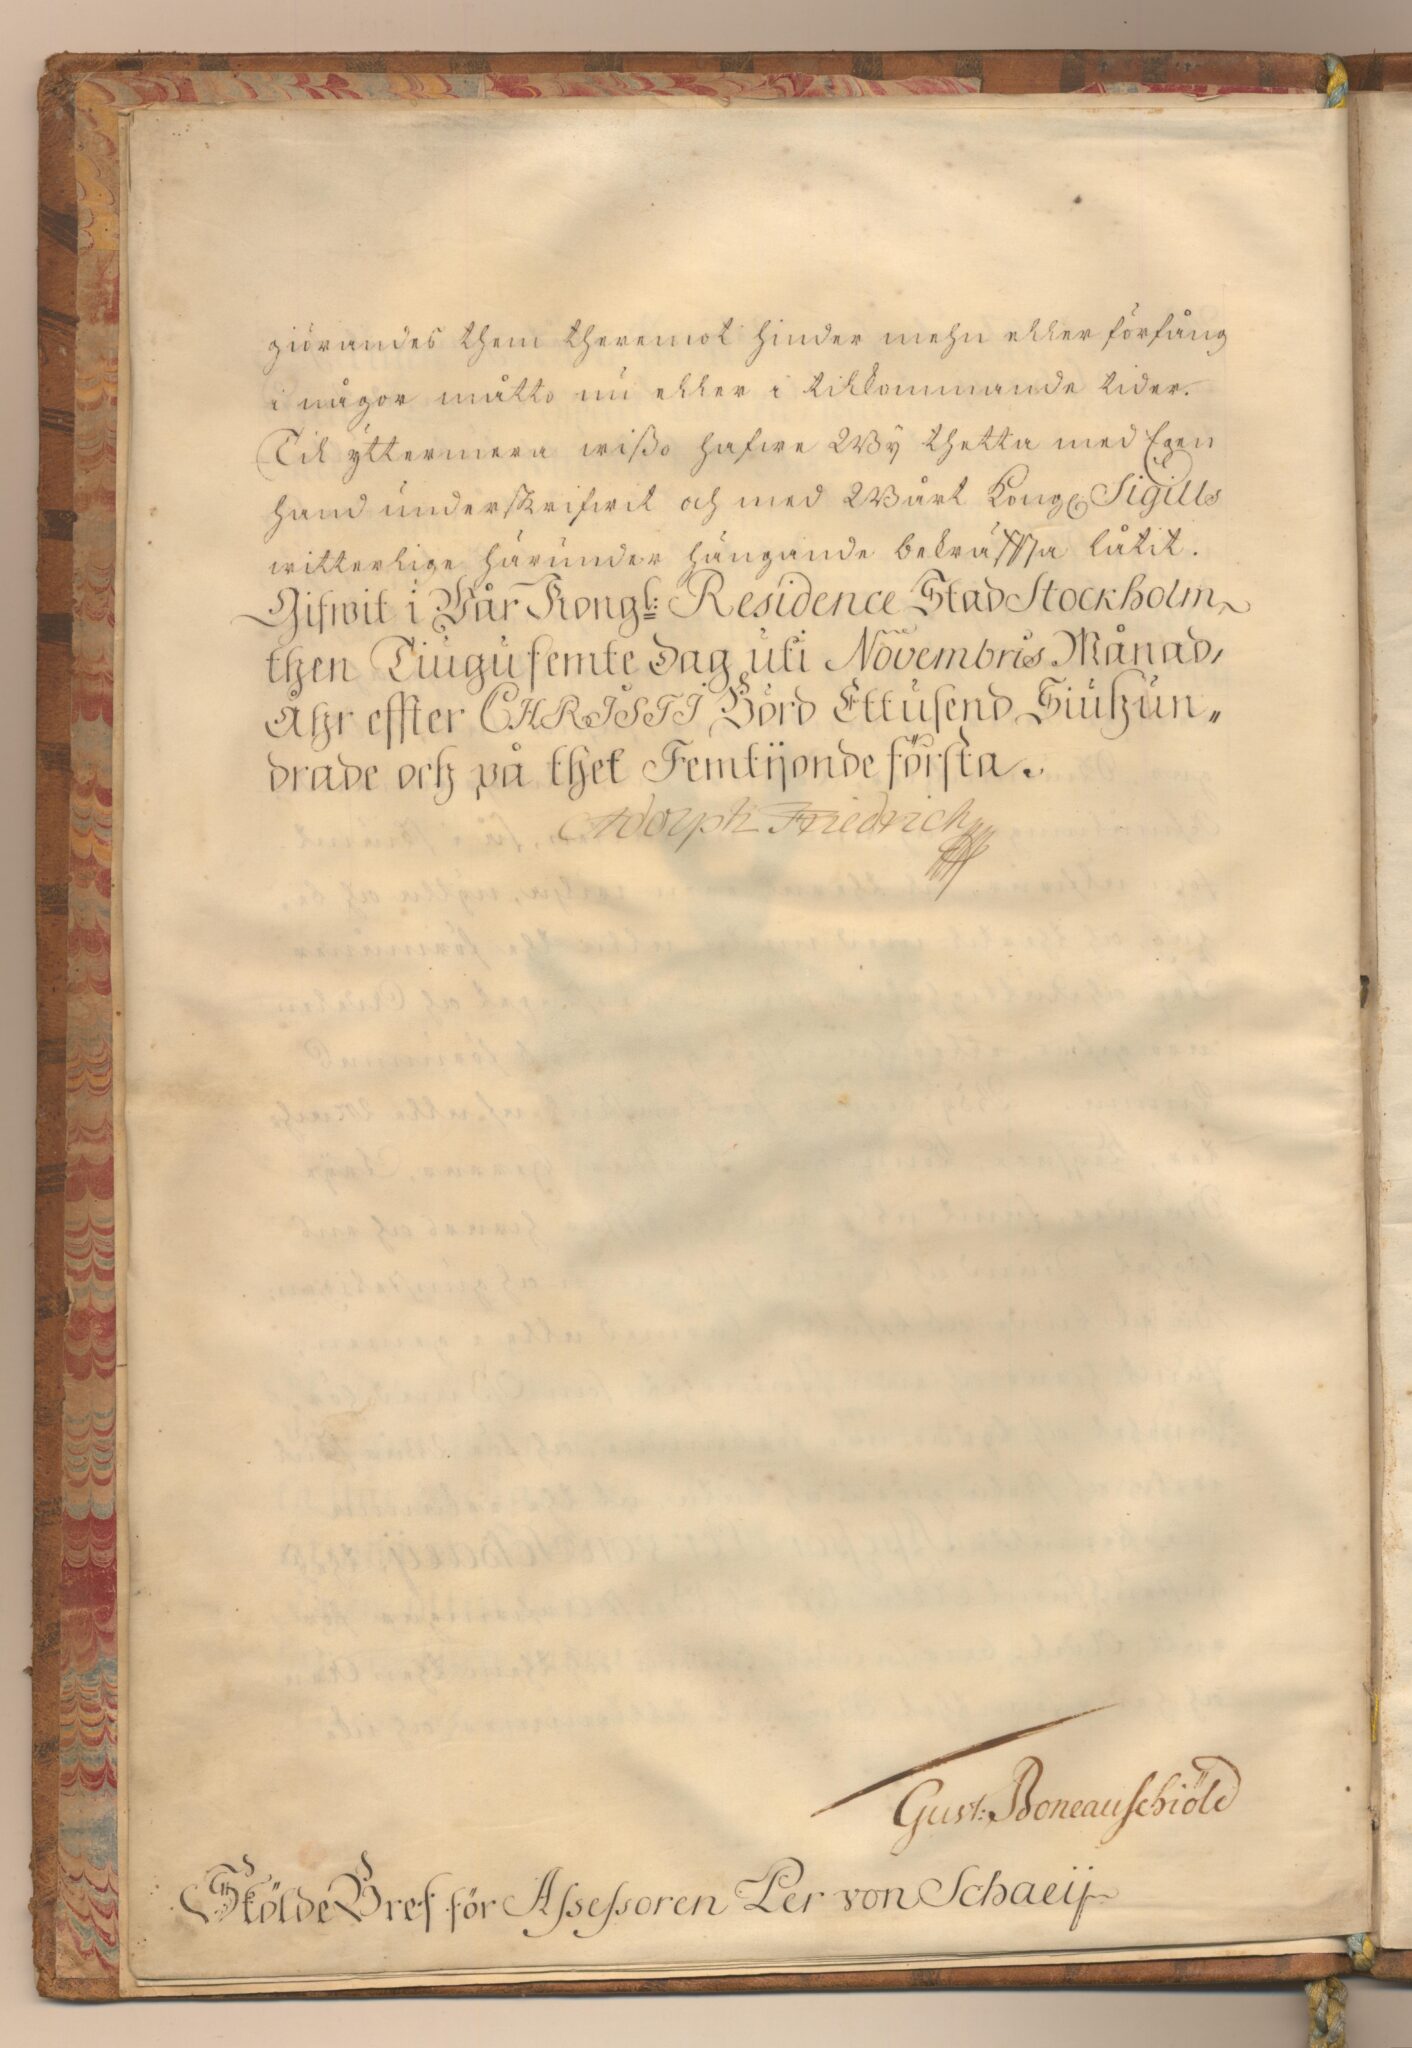 giörandes them theremot hinder mehn eller förfång
i någor måtto nu eller i tillkommande tider.
Til yttermera wißo hafwe Wy thetta med Egen
hand underskrifwit och med Wårt Kongl. Sigills
witterlige härunder hängande bekräffta låtit.
Gifwit i Vår Kongl: Residence Stad Stockholm
then Tiugufemte dag uti Novembris Månad,
Åhr effter CHRISTI Börd Ettusend Siuhun„
drade och på thet Femtijonde första.
Adolph Friedrich
Gust: Boneauschiöld
Skölde Bref för Assessoren Per von Schaeij